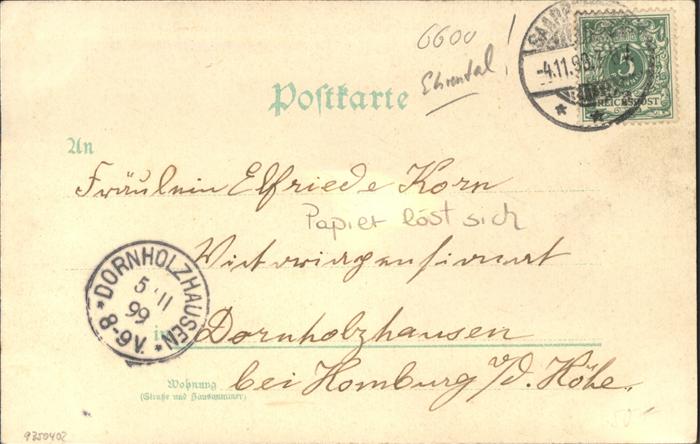 6600
Ehrental
SAARB
-4.11.99.
5
REICHSPOST
Postkarte
An
Fräulein Elfriede Korn
Papier löst sich
DORNHOLZHAUSEN
5 11
99
8-9V.
in Dornholzhausen
Wohnung
(Straße und Hausnummer)
bei Homburg v/d. Höhe.
9350402